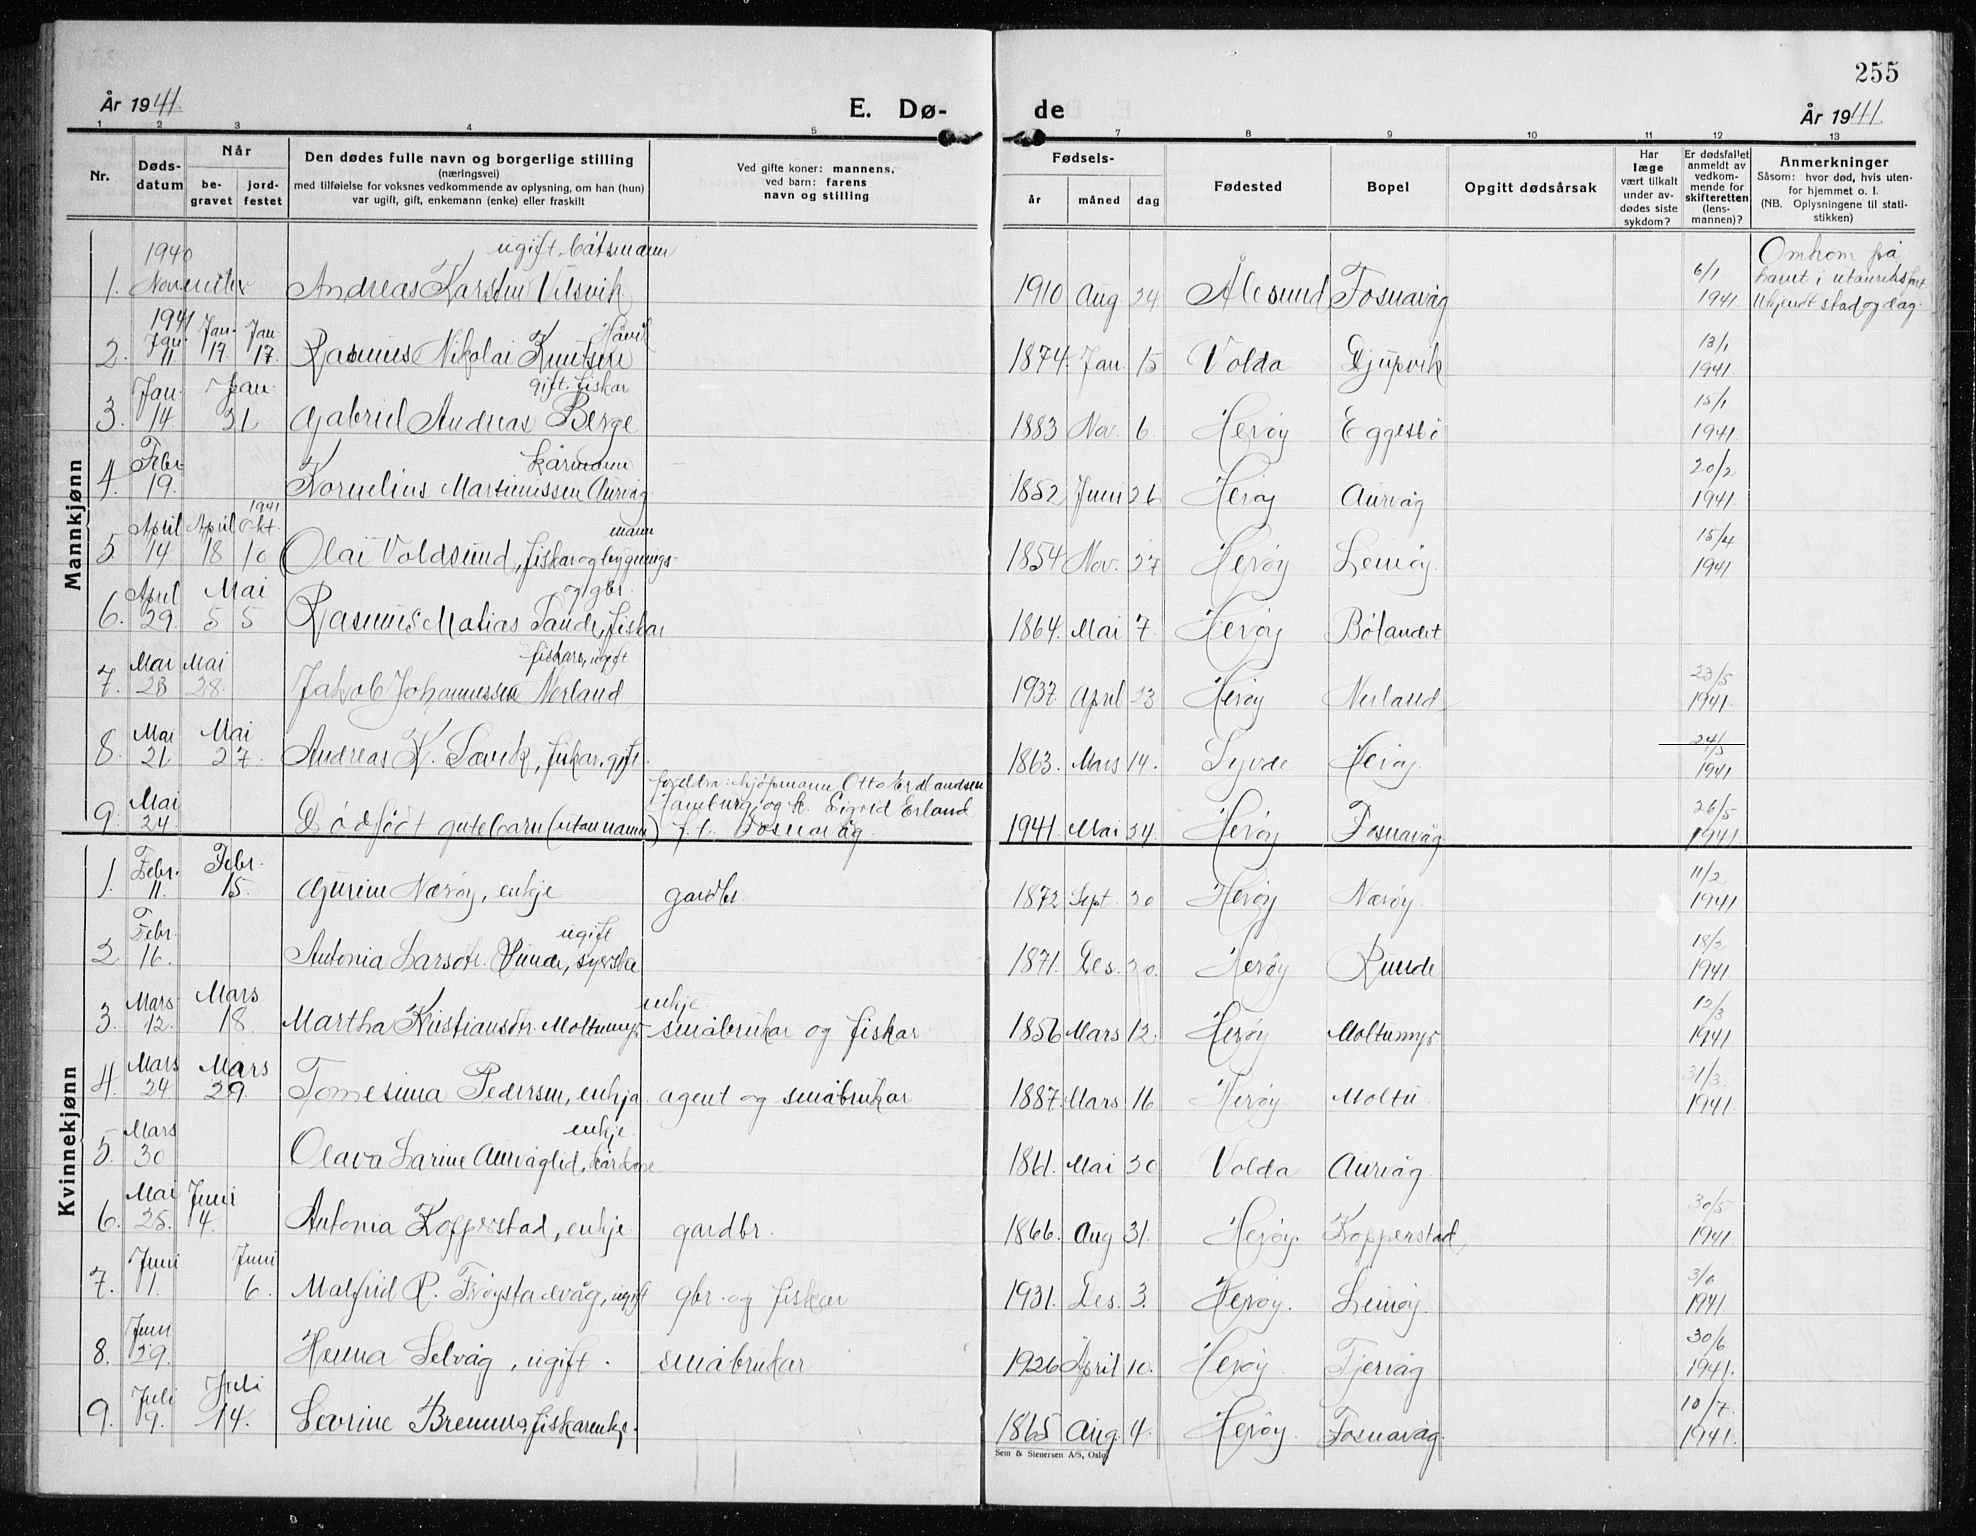 255
År 1941.
E. Dø-
de
År 1941.
1 2 3 4 5 7 8 9 10 11 12 13
Nr.
Døds-
datum
Når
be-
gravet
jord-
festet
Den dødes fulle navn og borgerlige stilling
(næringsvei)
med tilføielse for voksnes vedkommende av oplysning, om han (hun)
var ugift, gift, enkemann (enke) eller fraskilt
Ved gifte koner: mannens,
ved barn: farens
navn og stilling
Fødsels-
år måned dag
Fødested
Bopel
Opgitt dødsårsak
Har
læge
vært tilkalt
under av-
dødes siste
sykdom?
Er dødsfallet
anmeldt av
vedkom-
mende for
skifteretten
(lens-
mannen)?
Anmerkninger
Såsom: hvor død, hvis uten-
for hjemmet o. l.
(NB. Oplysningene til stati-
stikken)
Mannkjønn
1940 ugift, båtsmann Omkom på
1. November Andreas Karsten Vilsvik 1910 Aug. 24 Ålesund Fosnavåg 6/1 1941. havet i utanriksfart.
Ukjendt stad og dag.
1941 Håvik
2. Jan. 11 Jan. 17. Jan. 17. Rasmus Nikolai Knutsen 1874. Jan. 15 Volda Djupvik 13/1 1941.
gift. fiskar
3. Jan. 14 Jan. 21 Gabriel Andreas Berge 1883 Nov. 6. Herøy Eggesbø 15/1 1941.
kårmann
4. Febr 19. Kornelius Martinussen Aurvåg 1852 Juni 26 Herøy Aurvåg 20/2 1941.
1941 mann
5. April 14. April 18 Okt. 10 Olai Voldsund, fiskar og bygnings- 1854 Nov. 27 Herøy Leinøy. 15/4 1941.
og gbr.
6. April 29. Mai 5 5 Rasmus Matias Sande, fiskar 1864. Mai 7. Herøy Bølandet
fiskars, ugift
7. Mai 23 Mai 28. Jakob Johannessen Nerland 1937. April 23 Herøy Nerland 23/5 1941.
8. Mai 21. Mai 27. Andreas K. Sævik, fiskar, gift. 1863. Mars 14. Syvde Herøy 24/5 1941
foreldra: kjøpmann Otto Erdlandsen
Hamburg, og k. Sigrid Erland
9. Mai 24. Dødfødt gutebarn (utan namn) f. t. Fosnavåg. 1941. Mai 24. Herøy Fosnavåg 26/5 1941
Kvinnekjønn
1. Febr. 11. Febr. 15. Gurine Nærøy, enkje gardbr. 1872 Sept. 30 Herøy Nærøy. 11/2 1941
ugift
2 Febr. 16. Antonia Larsdtr. Runde, syerska 1871. Des. 30. Herøy Runde 18/3 1941
enkje.
3. Mars 12. Mars 18. Martha Kristiansdtr. Moltumyr småbrukar og fiskar 1856 Mars 12. Herøy Moltumyr 12/3 1941
4. Mars 24 Mars 29. Tomesina Pedersen, enkja. agent og småbrukar 1887. Mars 16 Herøy. Moltu. 31/3. 1941.
enkje.
5. Mars 30 Olava Larine Aurvåglid, kårkone 1861. Mai 30. Volda Aurvåg.
6. Mai 25. Juni 4. Antonia Kopperstad, enkje. gardbr. 1866. Aug 31. Herøy. Kopperstad, 30/5 1941
7. Juni 1. Juni 6. Malfrid R. Frøystadvåg, ugift gbr. og fiskar 1931. Des. 3. Herøy. Leinøy. 3/6 1941.
8. Juni 29. Henna Selvåg, ugift. småbrukar 1926 April 10. Herøy Tjervåg 30/6 1941.
9. Juli 9. Juli 14. Sevrine Bremnes, fiskarenkje. 1865 Aug. 4. Herøy. Fosnavåg. 10/7. 1941.
Sem & Stenersen A/S, Oslo.